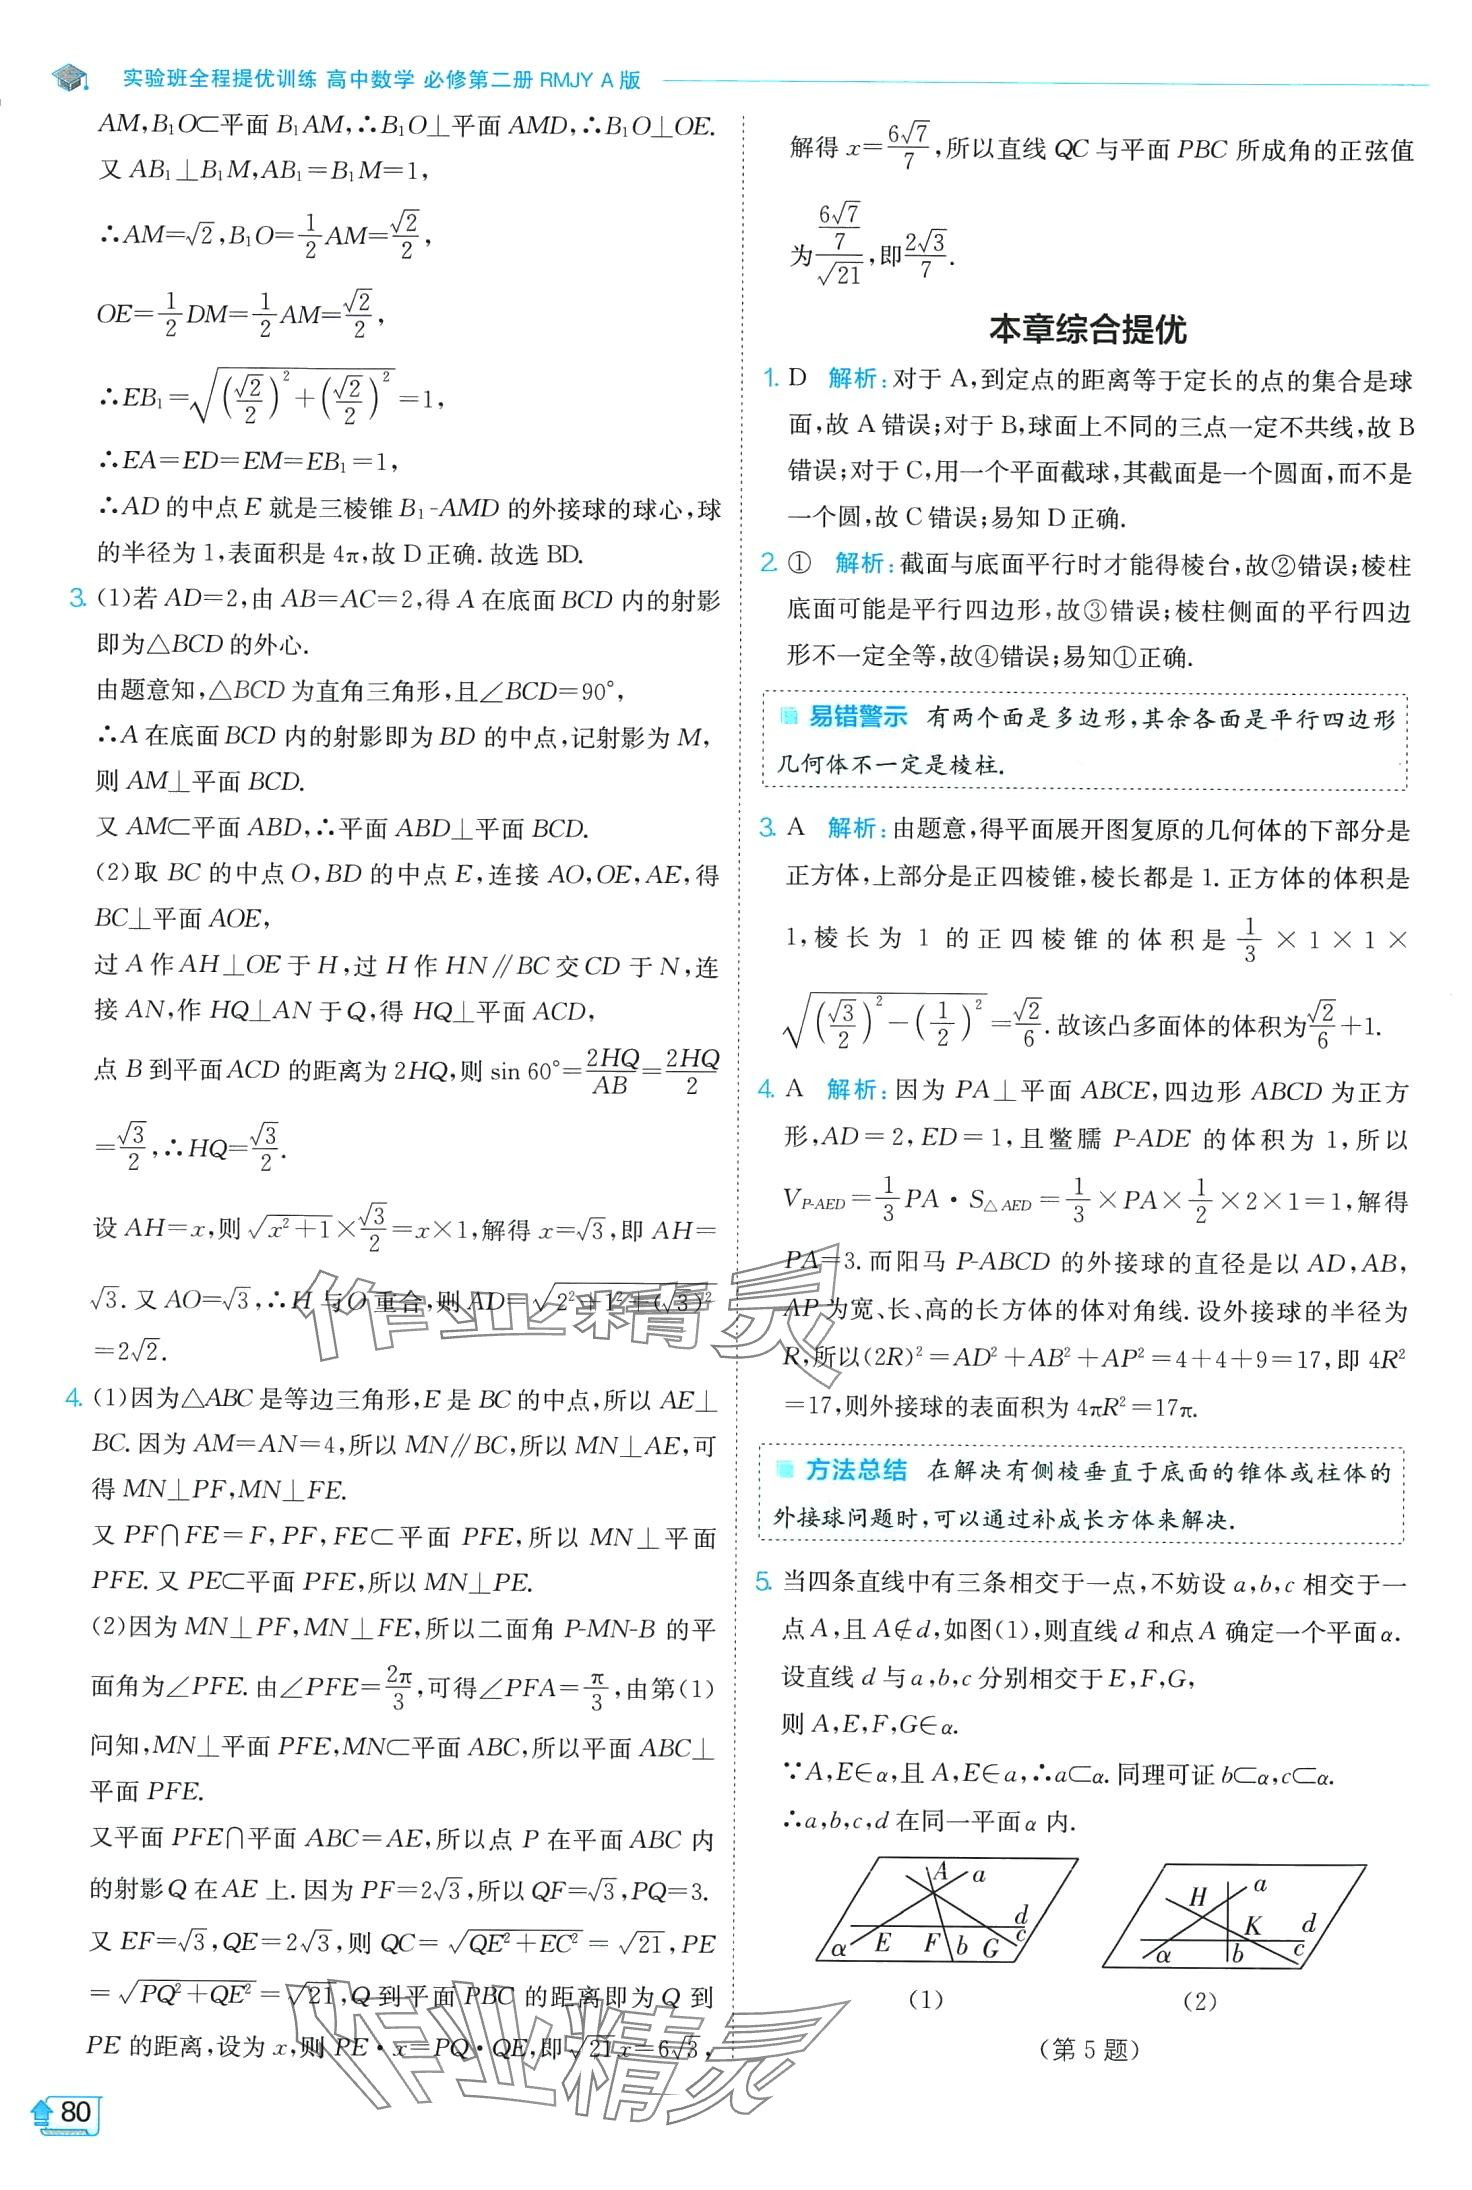 实验班全程提优训练 高中数学 必修第二册 RMJY A 版
AM,B₁O⊂平面 B₁AM,∴B₁O⊥平面 AMD,∴B₁O⊥OE.
又 AB₁⊥B₁M,AB₁=B₁M=1,
∴AM=√2,B₁O=1/2 AM=√2/2,
OE=1/2 DM=1/2 AM=√2/2,
∴EB₁=√((√2/2)²+(√2/2)²)=1,
∴EA=ED=EM=EB₁=1,
∴AD 的中点 E 就是三棱锥 B₁-AMD 的外接球的球心,球
的半径为 1,表面积是 4π,故 D 正确.故选 BD.
3. (1)若 AD=2,由 AB=AC=2,得 A 在底面 BCD 内的射影
即为△BCD 的外心.
由题意知,△BCD 为直角三角形,且∠BCD=90°,
∴A 在底面 BCD 内的射影即为 BD 的中点,记射影为 M,
则 AM⊥平面 BCD.
又 AM⊂平面 ABD,∴平面 ABD⊥平面 BCD.
(2)取 BC 的中点 O,BD 的中点 E,连接 AO,OE,AE,得
BC⊥平面 AOE,
过 A 作 AH⊥OE 于 H,过 H 作 HN∥BC 交 CD 于 N,连
接 AN,作 HQ⊥AN 于 Q,得 HQ⊥平面 ACD,
点 B 到平面 ACD 的距离为 2HQ,则 sin 60°=2HQ/AB=2HQ/2
=√3/2,∴HQ=√3/2.
设 AH=x,则 √(x²+1)×√3/2=x×1,解得 x=√3,即 AH=
√3.又 AO=√3,∴H 与 O 重合,则 AD=√(2²+1²+(√3)²)
=2√2.
4. (1)因为△ABC 是等边三角形,E 是 BC 的中点,所以 AE⊥
BC.因为 AM=AN=4,所以 MN∥BC,所以 MN⊥AE,可
得 MN⊥PF,MN⊥FE.
又 PF∩FE=F,PF,FE⊂平面 PFE,所以 MN⊥平面
PFE.又 PE⊂平面 PFE,所以 MN⊥PE.
(2)因为 MN⊥PF,MN⊥FE,所以二面角 P-MN-B 的平
面角为∠PFE.由∠PFE=2π/3,可得∠PFA=π/3,由第(1)
问知,MN⊥平面 PFE,MN⊂平面 ABC,所以平面 ABC⊥
平面 PFE.
又平面 PFE∩平面 ABC=AE,所以点 P 在平面 ABC 内
的射影 Q 在 AE 上.因为 PF=2√3,所以 QF=√3,PQ=3.
又 EF=√3,QE=2√3,则 QC=√(QE²+EC²)=√21,PE
=√(PQ²+QE²)=√21,Q 到平面 PBC 的距离即为 Q 到
PE 的距离,设为 x,则 PE·x=PQ·QE,即√21x=6√3,
80
解得 x=6√7/7,所以直线 QC 与平面 PBC 所成角的正弦值
为(6√7/7)/√21,即2√3/7.
本章综合提优
1. D 解析:对于 A,到定点的距离等于定长的点的集合是球
面,故 A 错误;对于 B,球面上不同的三点一定不共线,故 B
错误;对于 C,用一个平面截球,其截面是一个圆面,而不是
一个圆,故 C 错误;易知 D 正确.
2. ① 解析:截面与底面平行时才能得棱台,故②错误;棱柱
底面可能是平行四边形,故③错误;棱柱侧面的平行四边
形不一定全等,故④错误;易知①正确.
易错警示 有两个面是多边形,其余各面是平行四边形
几何体不一定是棱柱.
3. A 解析:由题意,得平面展开图复原的几何体的下部分是
正方体,上部分是正四棱锥,棱长都是 1.正方体的体积是
1,棱长为 1 的正四棱锥的体积是 1/3×1×1×
√((√3/2)²-(1/2)²)=√2/6.故该凸多面体的体积为√2/6+1.
4. A 解析:因为 PA⊥平面 ABCE,四边形 ABCD 为正方
形,AD=2,ED=1,且鳖臑 P-ADE 的体积为 1,所以
V_{P-AED}=1/3 PA·S_{△AED}=1/3×PA×1/2×2×1=1,解得
PA=3.而阳马 P-ABCD 的外接球的直径是以 AD,AB,
AP 为宽、长、高的长方体的体对角线.设外接球的半径为
R,所以(2R)²=AD²+AB²+AP²=4+4+9=17,即 4R²
=17,则外接球的表面积为 4πR²=17π.
方法总结 在解决有侧棱垂直于底面的锥体或柱体的
外接球问题时,可以通过补成长方体来解决.
5. 当四条直线中有三条相交于一点,不妨设 a,b,c 相交于一
点 A,且 A∉d,如图(1),则直线 d 和点 A 确定一个平面 α.
设直线 d 与 a,b,c 分别相交于 E,F,G,
则 A,E,F,G∈α.
∵A,E∈α,且 A,E∈a,∴a⊂α.同理可证 b⊂α,c⊂α.
∴a,b,c,d 在同一平面 α 内.
A a d α E F b G c
H a K d α b c
(1) (2)
(第 5 题)
作业精灵
作业精灵